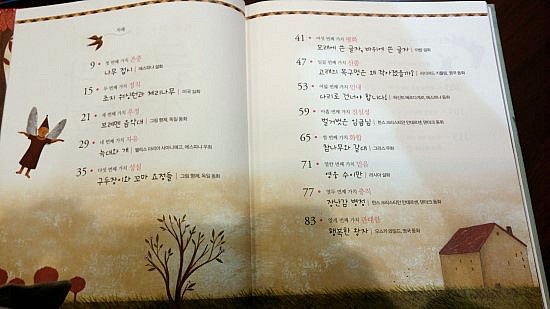 차례
9 • 첫 번째 가치 존중
나무 접시 | 에스파냐 설화
15 • 두 번째 가치 정직
조지 워싱턴과 체리나무 | 미국 실화
21 • 세 번째 가치 우정
브레멘 음악대 | 그림 형제, 독일 동화
29 • 네 번째 가치 자유
늑대와 개 | 펠릭스 마리아 사마니에고, 에스파냐 우화
35 • 다섯 번째 가치 성실
구두장이와 꼬마 요정들 | 그림 형제, 독일 동화
41 • 여섯 번째 가치 평화
모래에 쓴 글자, 바위에 쓴 글자 | 아랍 설화
47 • 일곱 번째 가치 신중
고래의 목구멍은 왜 작아졌을까? | 러디어드 키플링, 영국 동화
53 • 여덟 번째 가치 인내
다리로 건너야 합니다! | 에스파냐 동화
59 • 아홉 번째 가치 진실성
벌거벗은 임금님 | 한스 크리스티안 안데르센, 덴마크 동화
65 • 열 번째 가치 화합
참나무와 갈대 | 그리스 우화
71 • 열한 번째 가치 믿음
영웅 수이만 | 러시아 설화
77 • 열두 번째 가치 충직
장난감 병정 | 한스 크리스티안 안데르센, 덴마크 동화
83 • 열세 번째 가치 관대함
행복한 왕자 | 오스카 와일드, 영국 동화